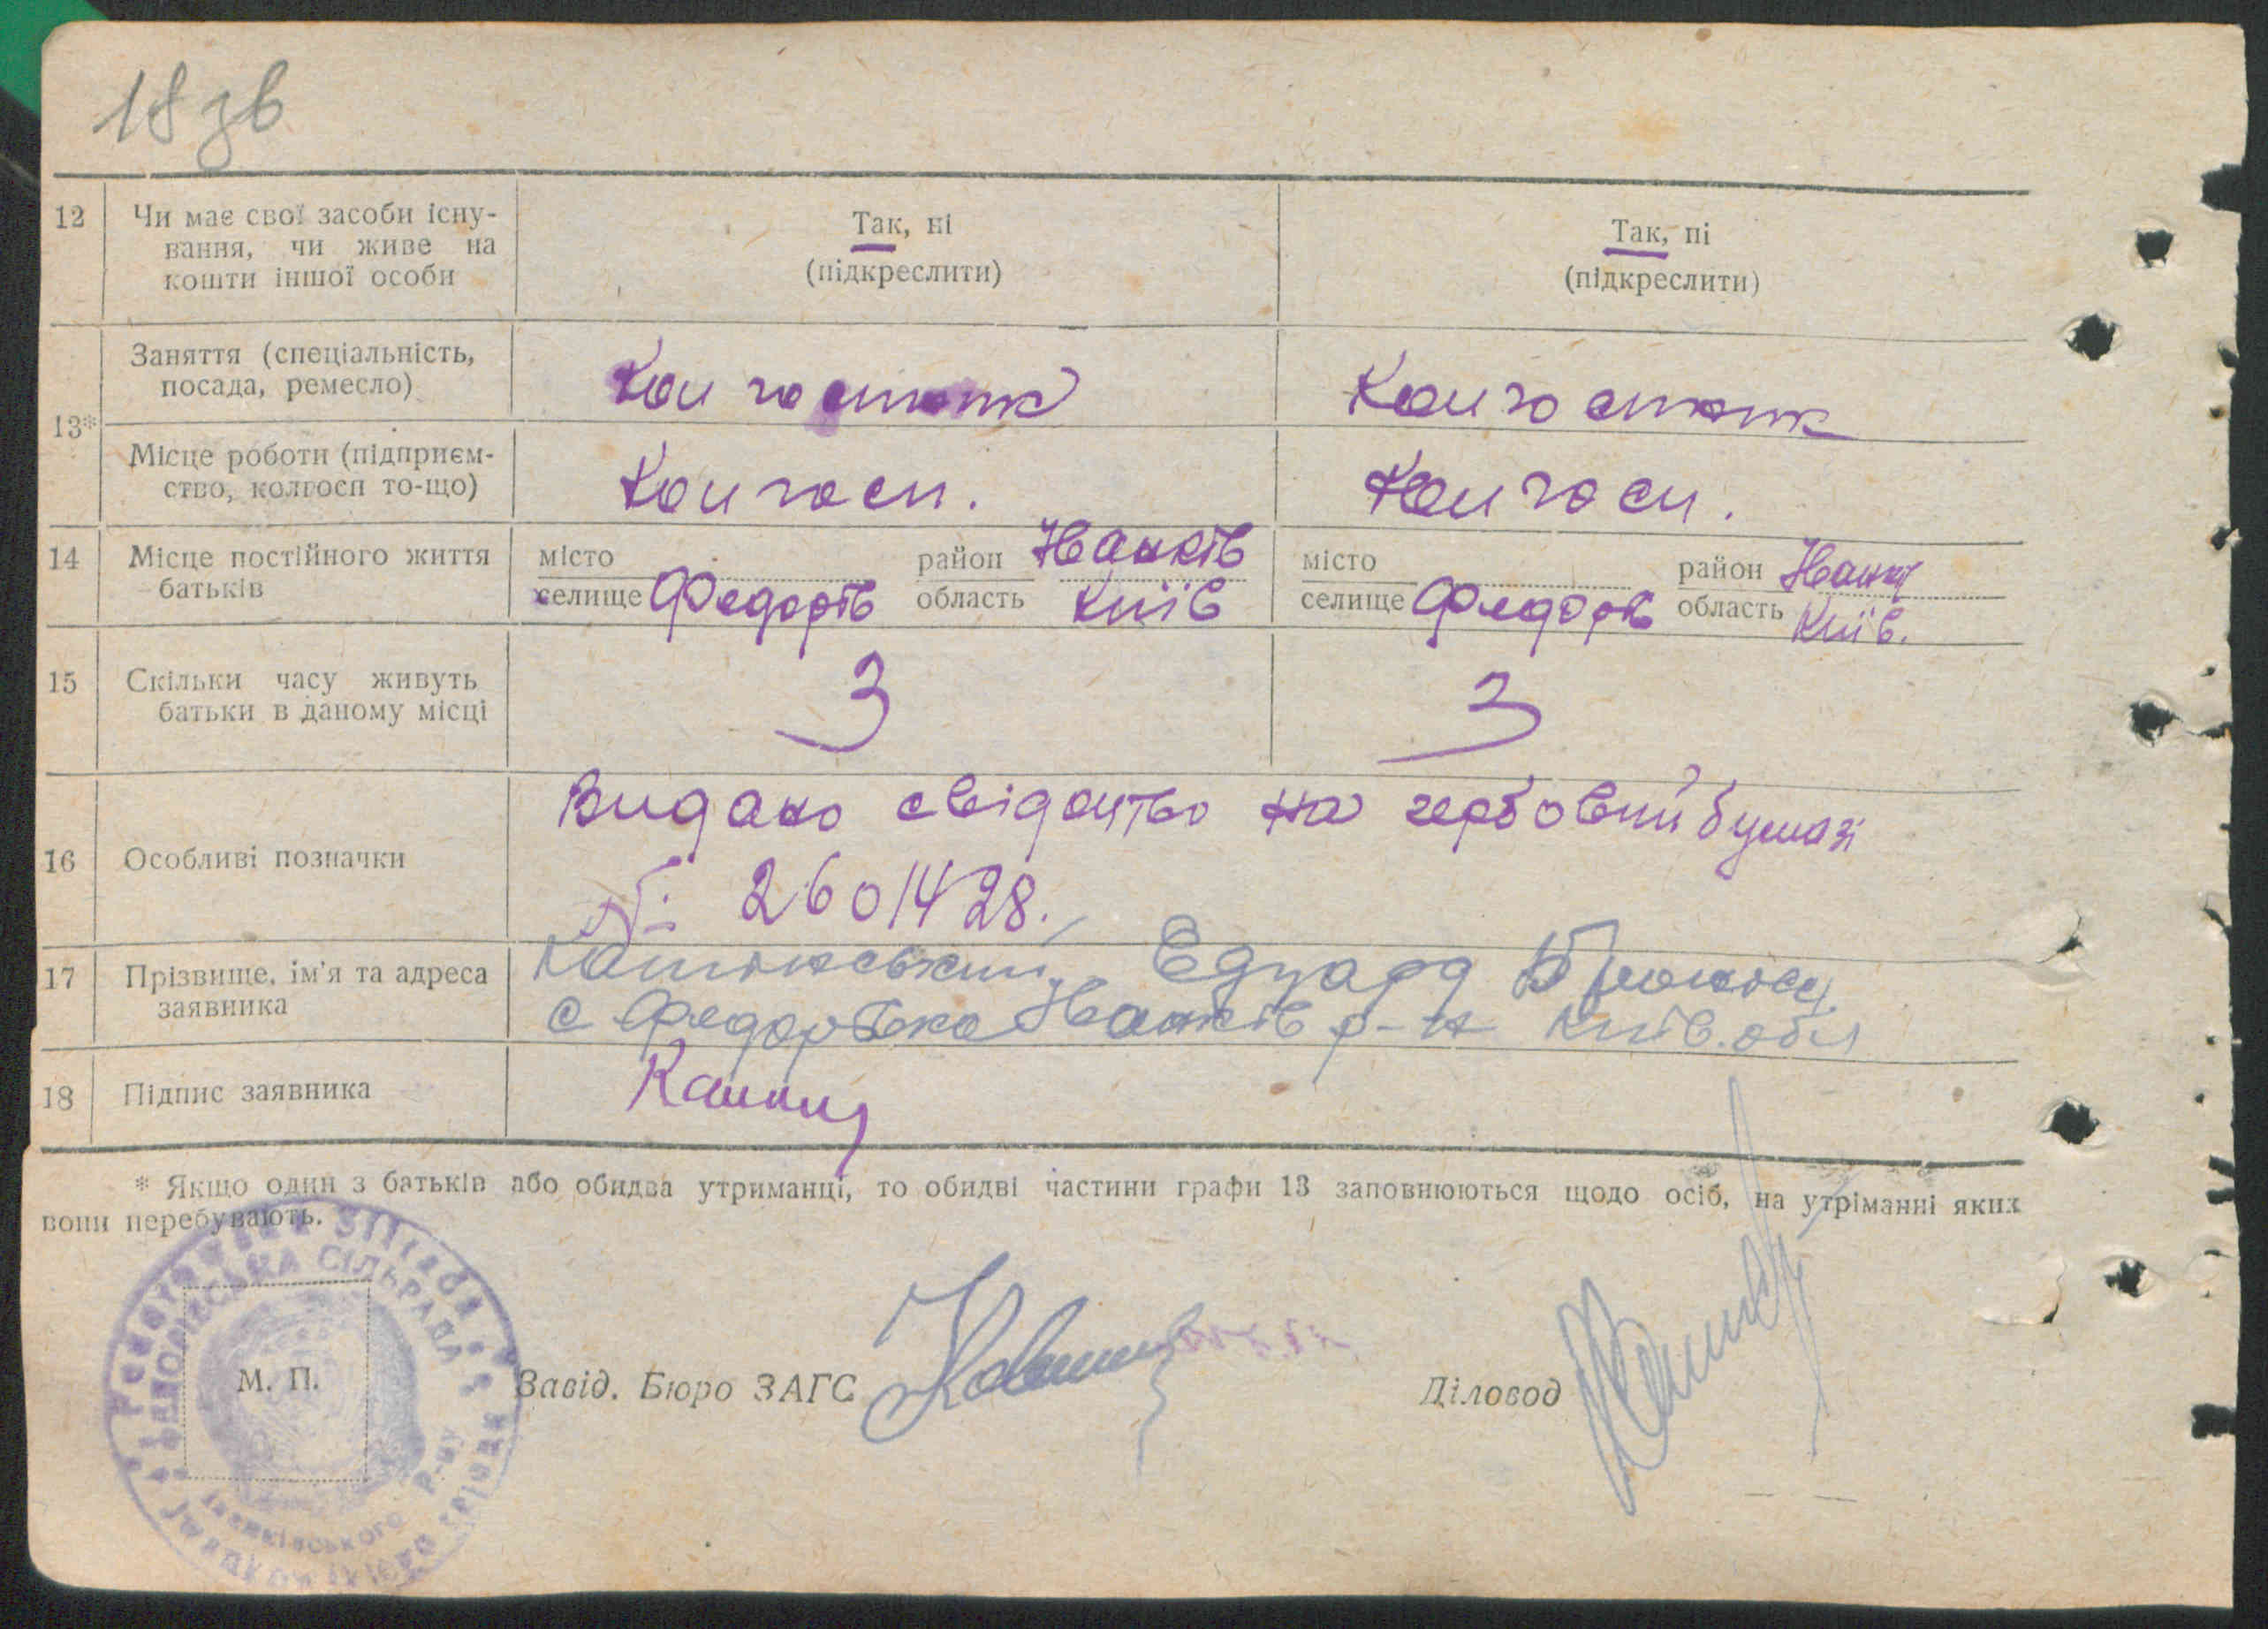 18 зв
12 Чи має свої засоби існу-
вання, чи живе на
кошти іншої особи
Так, ні
(підкреслити)
Так, ні
(підкреслити)
13*
Заняття (спеціальність,
посада, ремесло)
Місце роботи (підприєм-
ство, колгосп то-що)
Колгосп.
Колгосп.
14 Місце постійного життя
батьків
місто район Іванків
селище Федорів область Київ
місто район Іванк
селище Федорів область Київ.
15 Скільки часу живуть
батьки в даному місці
3
3
16 Особливі позначки
Видано свідоцтво на гербовий бумазі
№ 2601428.
17 Прізвище, ім'я та адреса
заявника
Едуард
с Федорівка Іванків р-н Київ. обл
18 Підпис заявника
* Якщо один з батьків або обидва утриманці, то обидві частини графи 13 заповнюються щодо осіб, на утріманні яких
вони перебувають.
СІЛЬРАДА
Іванківського р-ну
М. П.
Завід. Бюро ЗАГС
Діловод